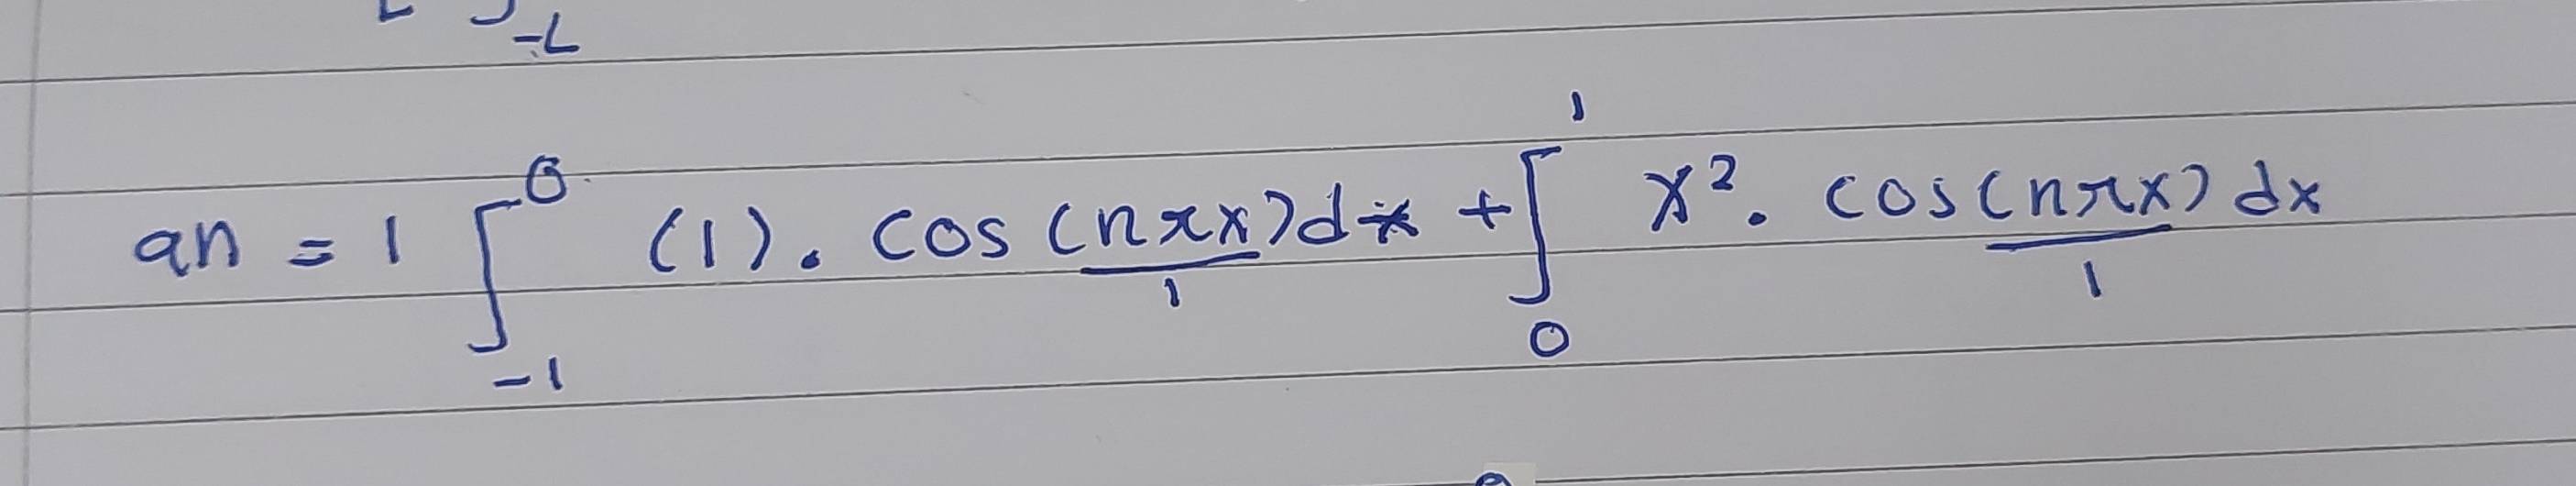 -L
an = 1 ∫_{-1}^{0} (1). cos (nπx)/1 dx + ∫_{0}^{1} x². cos (nπx)/1 dx